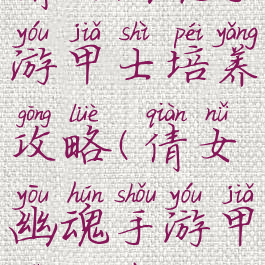 yóu jiǎ shì péi yǎng
游甲士培养
gōng lüè qiàn nǚ
攻略(倩女
yōu hún shǒu yóu jiǎ
幽魂手游甲